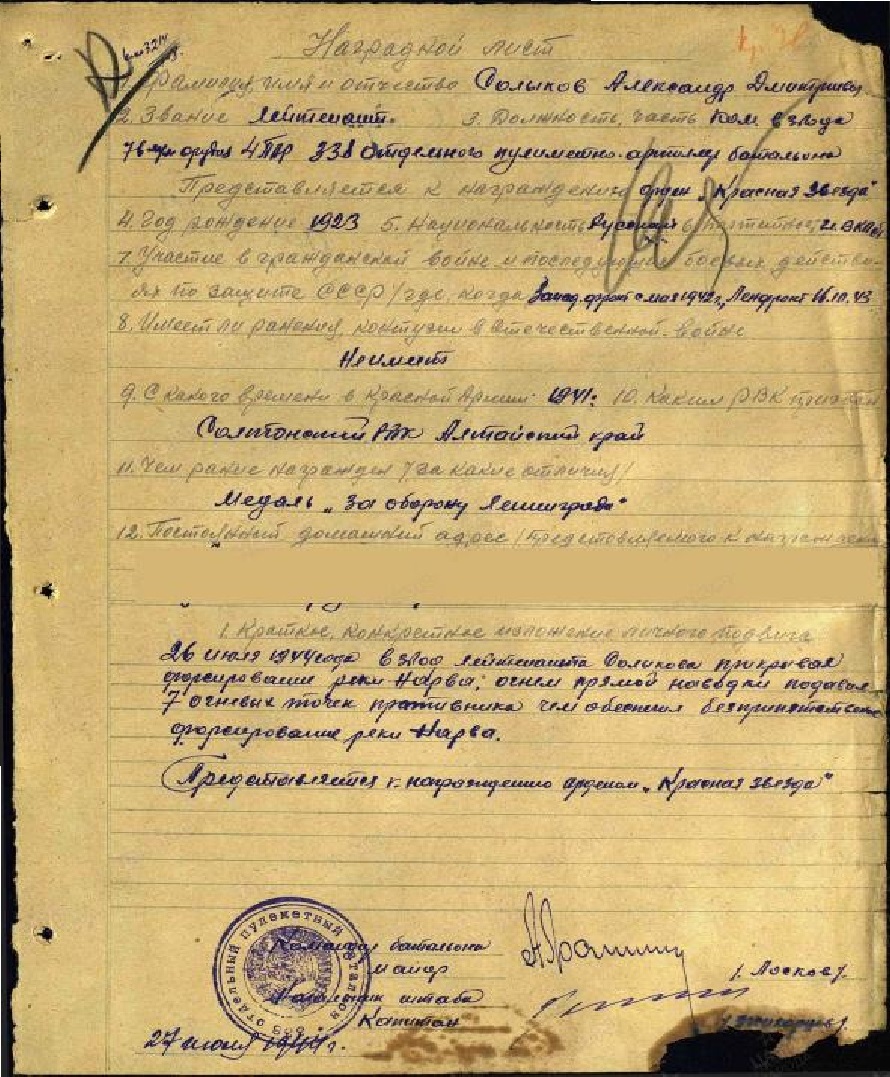 Наградной лист
1. Фамилия, имя и отчество Солыков Александр Дмитриев
2. Звание Лейтенант. 3. Должность, часть Ком. взвода
орудий 338 отдельного пулиметно-артиллер батальона
Представляется к награждению орден „Красная Звезда"
4. Год рождение 1923 5. Национальность Русский 6 партийност
7. Участие в гражданской войне и последующих боевых действи-
ях по защите СССР /где, когда Запад. фронт с мая 1942 г, Ленфронт 16.10.43
8. Имеет ли ранения, контузии в отечественной войне
Неимеет
9. С какого времени в Красной Армии 1941. 10. Каким РВК призван
Солтонский РВК Алтайский край
11. Чем ранее награжден /за какие отличия/
Медаль „За оборону Ленинграда"
12. Постоянный домашний адрес /представляемого к награжден
1. Краткое, конкретное изложение личного подвига
26 июля 1944 года взвод лейтенанта Соликова прикривая
форсирование реки Нарва; огнем прямой наводки подавил
7 огневых точек противника чем обеспечил безпрепятственое
форсирование реки Нарва.
Представляется к награждению орденом „Красная звезда"
отдельный пулеметный
Командир батальона
майор / Лосков /.
Начальник штаба
Капитан
27 июля 1944 г.